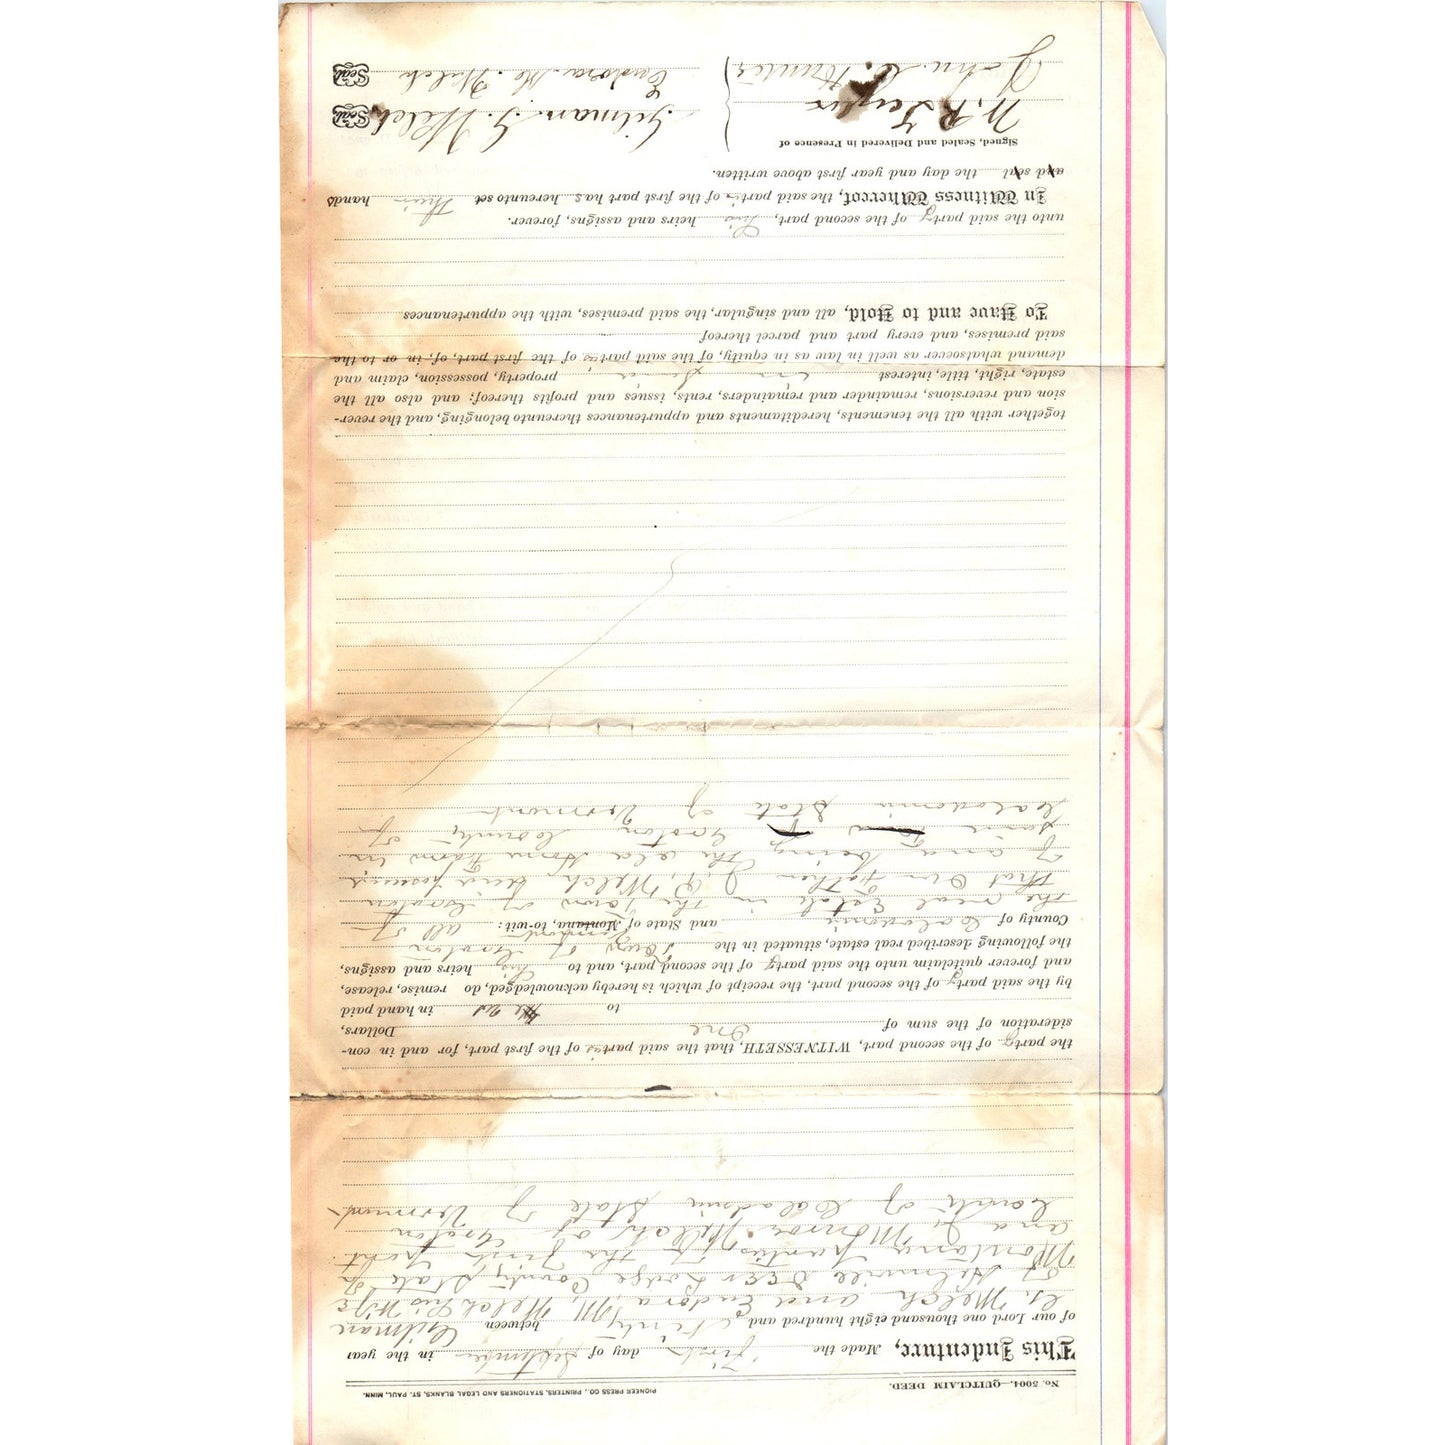 No. 5004.—QUITCLAIM DEED. PIONEER PRESS CO., PRINTERS, STATIONERS AND LEGAL BLANKS, ST. PAUL, MINN.
This Indenture, Made the First day of September in the year
of our Lord one thousand eight hundred and Ninty between Gilman
G. Welch and Eudora M. Welch his Wife
of Helmville Deer Lodge County State of
Montana parties of the First part
and J. Monroe Welch of Groton
County of Caladonia State of Vermont
the party of the second part, WITNESSETH, that the said parties of the first part, for and in con-
sideration of the sum of One Dollars,
to in hand paid
by the said party of the second part, the receipt of which is hereby acknowledged, do remise, release,
and forever quitclaim unto the said party of the second part, and to his heirs and assigns,
the following described real estate, situated in the Town of Groton
County of Caladonia and State of Montana, to-wit: all of
the real Estate in the Town of Groton
that Our Father J. P. Welch
and being the old Home Farm in
Groton County of
Caladonia State of Vermont
together with all the tenements, hereditaments and appurtenances thereunto belonging, and the rever-
sion and reversions, remainder and remainders, rents, issues and profits thereof; and also all the
estate, right, title, interest property, possession, claim and
demand whatsoever as well in law as in equity, of the said parties of the first part, of, in or to the
said premises, and every part and parcel thereof
To Have and to Hold, all and singular, the said premises, with the appurtenances
unto the said party of the second part, his heirs and assigns, forever.
In Witness Whereof, the said parties of the first part has hereunto set their hands
and seal the day and year first above written.
Signed, Sealed and Delivered in Presence of
Gilman G. Welch Seal
John Eudora M. Welch Seal